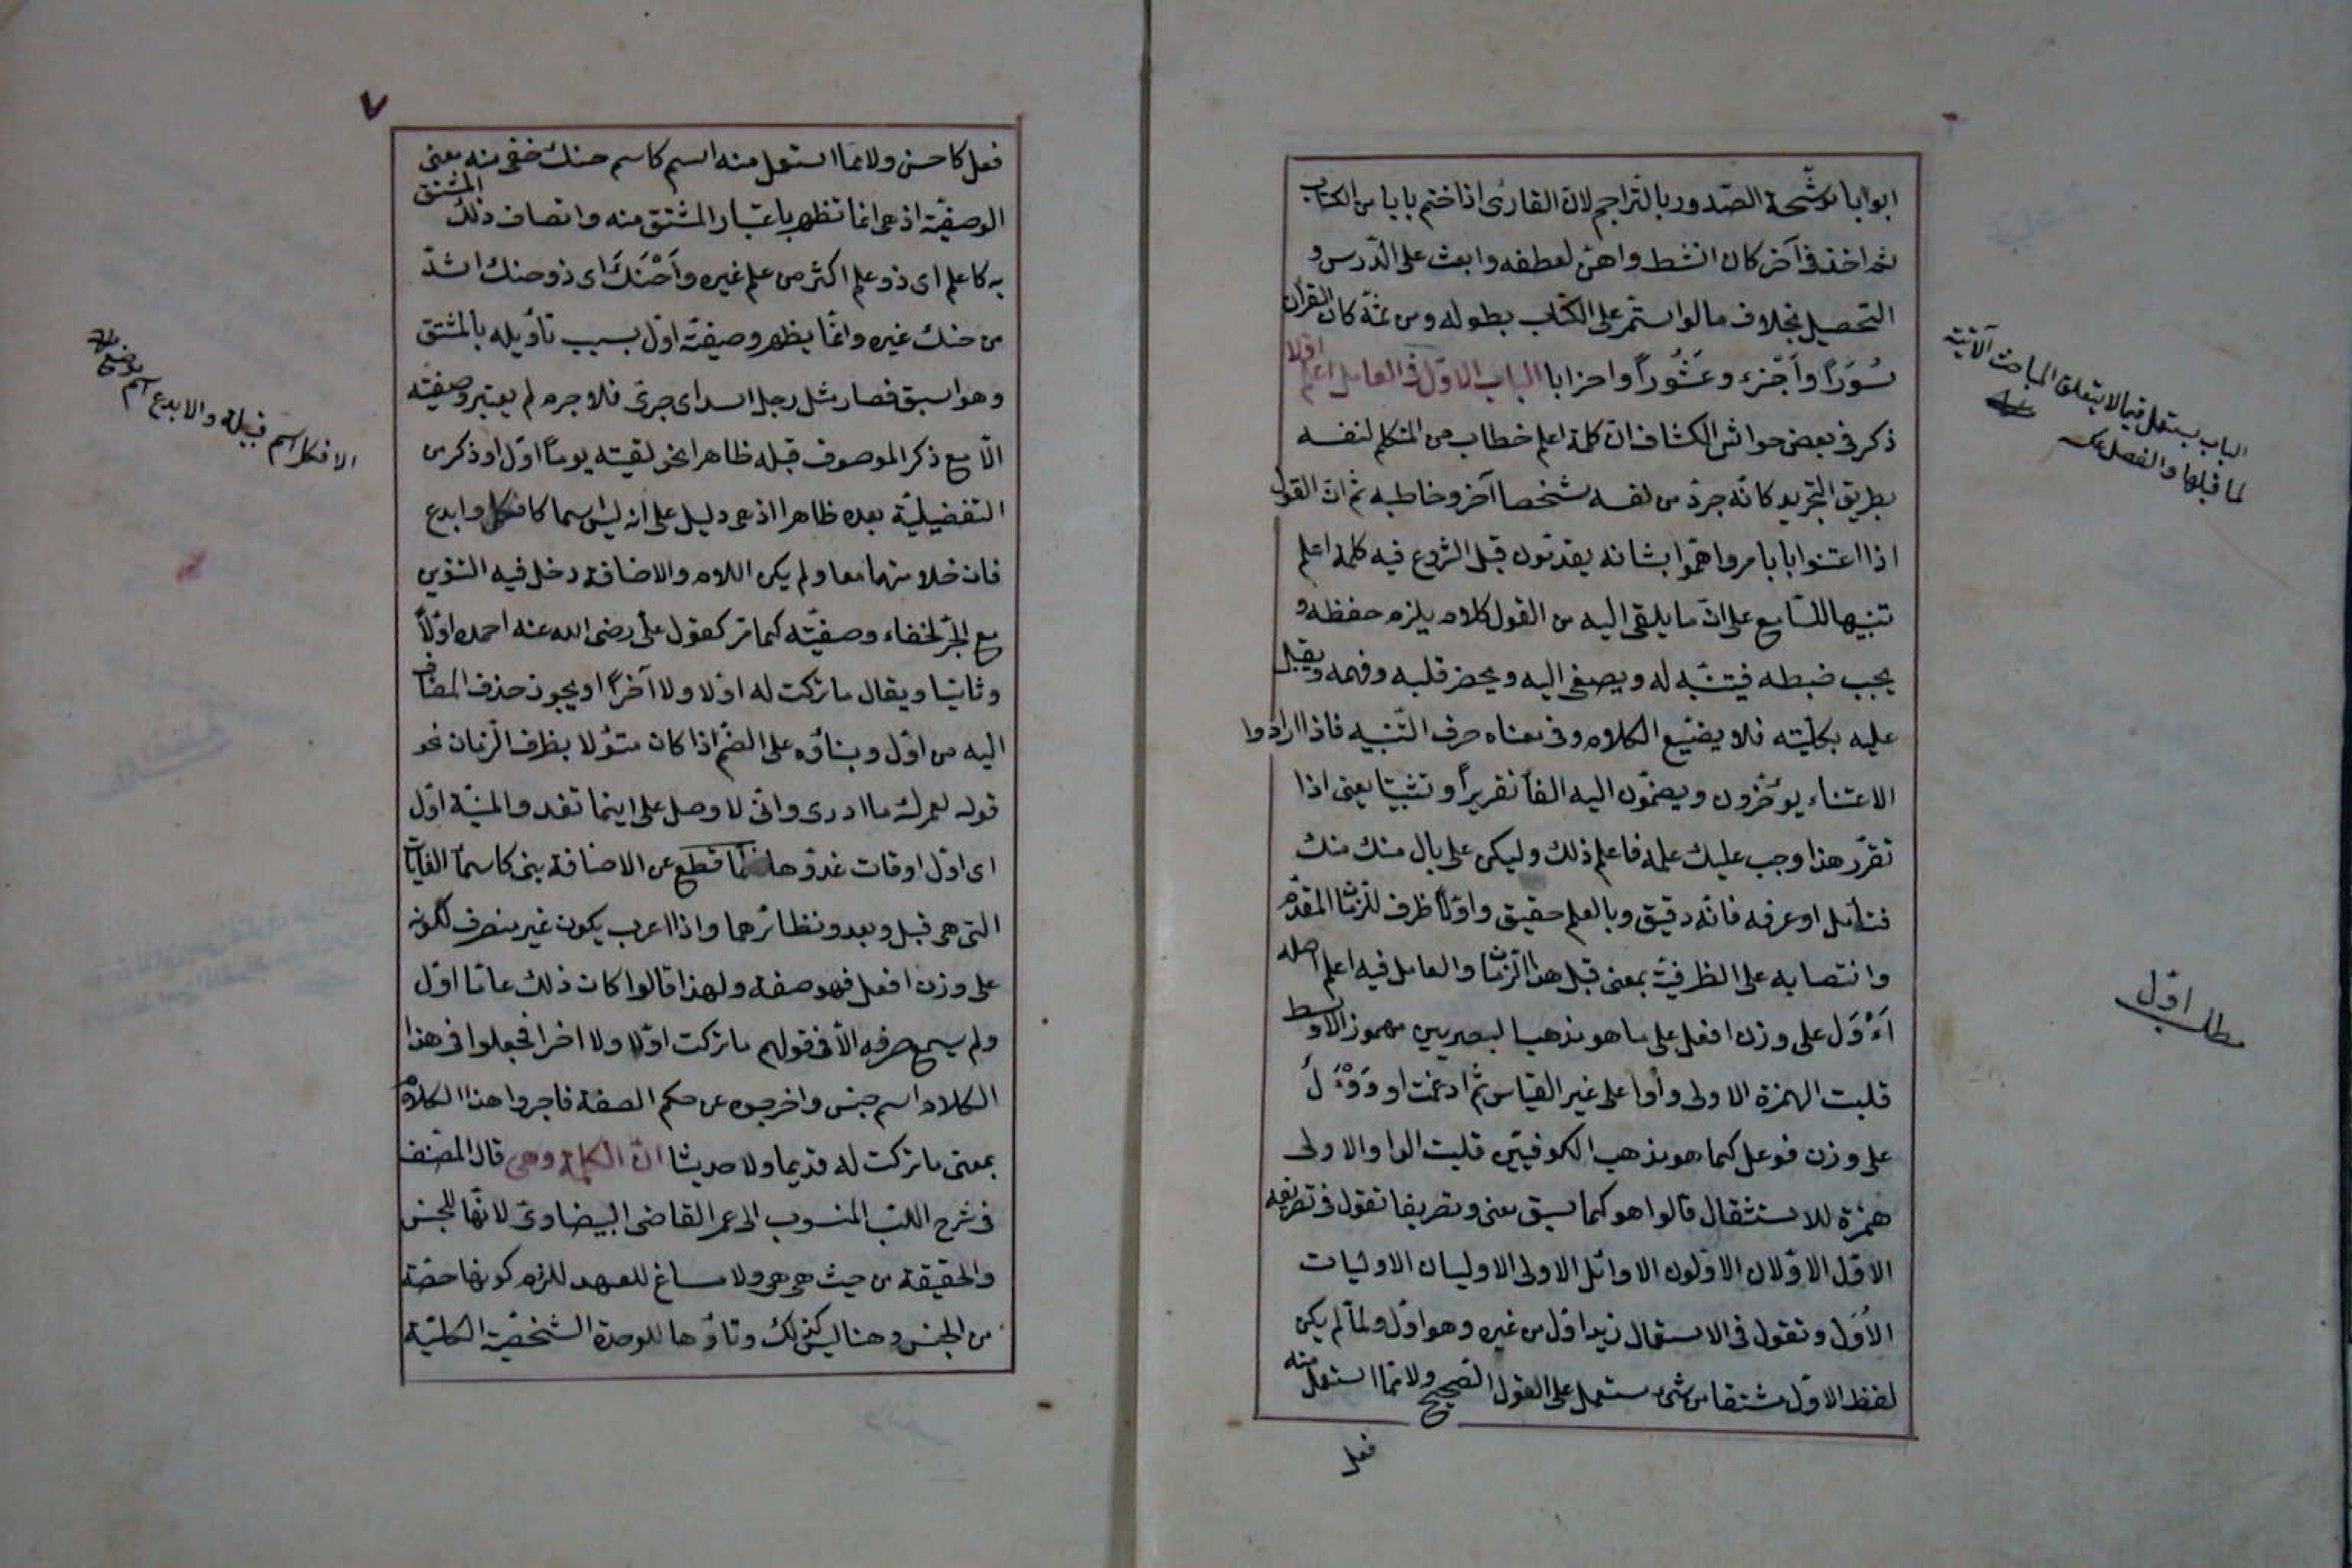 ابوابا موشّحة الصّدور بالتّراجم لانّ القارئ اذا ختم بابا من الكتاب
ثم اخذ فى آخر كان انشط واهزّ لعطفه وابعث على الدّرس و
التحصيل بخلاف ما لو استمرّ على الكتاب بطوله ومن ثمّة كان القرآن
سُوَراً وأجزء وعَشُوراً واحزابا الباب الاوّل فى العامل اعلم اوّلا
ذكر فى بعض حواشى الكشاف انّ كلمة اعلم خطاب من المتكلم لنفسه
بطريق التجريد كانّه جرد من نفسه شخصا آخر وخاطبه ثم انّ القول
اذا اعتنوا بابا مر واهمّوا بشانه يقدّمون قبل الشروع فيه كلمة اعلم
تنبيها للسّامع على انّ ما يلقى اليه من القول كلام يلزم حفظه و
يجب ضبطه فيتنبّه له ويصغى اليه ويحضر قلبه وفهمه ويقبل
عليه بكليّته فلا يضيّع الكلام وفى معناه حرف التّنبيه فاذا ارادوا
الاعتناء يؤخّرون ويضمّون اليه الفاً تقريراً وتثبيتا يعنى اذا
تقرّر هذا وجب عليك علمه فاعلم ذلك وليكن على بال منك منك
فتأمل او عرفه فانّه دقيق وبالعلم حقيق واوّلاً ظرف للزّمان المقدّم
وانتصابه على الظرفيّة بمعنى قبل هذا الزّمان والعامل فيه اعلم اصله
أَءْوَل على وزن افعل على ما هو مذهب البصريين مهموز الاوسط
قلبت الهمزة الاولى واوا على غير القياس ثمّ ادغمت او وَوْءَلُ
على وزن فوعل كما هو مذهب الكوفيّين قلبت الواو الاولى
همزة للاستثقال قالوا هو كما سبق معنى وتصريفا تقول فى تصريفه
الاوّل الاوّلان الاوّلون الاوائل الاولى الاوليان الاوليات
الأُوَل وتقول فى الاستعمال زيد اوّل من غيره وهو اوّل ولمّا لم يكن
لفظ الاوّل مشتقا من شئ مستعمل على القول الصّحيح ولا ممّا استعمل منه
فعل
الباب يستعمل فيما لا يتعلق المباحث الآتية
لما قبلها والفصل عكسه
مطلب اوّل
٧
فعل كاحسن ولا ممّا استعمل منه اسم كاسم حنك خفى منه معنى
الوصفيّة اذ هى انما تظهر باعتبار المشتق منه واتصاف ذلك المشتق
به كاعلم اى ذو علم اكثر من علم غيره وأَحْنَكَ اى ذو حنك اشدّ
من حنك غيره وانّما يظهر وصفيّة اوّل بسبب تأويله بالمشتق
وهو اسبق فصار مثل رجل اسد اى جرئ فلا جرم لم يعتبر وصفيّته
الّا مع ذكر الموصوف قبله ظاهرا نحو لقيته يوماً اوّل او ذكر من
التفضيليّة بعده ظاهرا اذ هى دليل على انه ليس اسما كافكل وابدع
فان خلا منهما معا ولم يكن اللام والاضافة دخل فيه التنوين
مع الجرّ لخفاء وصفيّته كما مرّ كقول علىّ رضى الله عنه احمده اوّلاً
وثانيا ويقال ما تركت له اوّلا ولا آخراً ويجوز حذف المضاف
اليه من اوّل وبناؤه على الضمّ اذا كان متؤلا بظرف الزّمان نحو
قوله لعمرك ما ادرى وانّى لاوجل على اينما تغدو المنيّة اوّل
اى اوّل اوقات غدوّها فلمّا قطع عن الاضافة بنى كاسماء الغايات
التى هى قبل وبعد ونظائرهما واذا اعرب يكون غير منصرف لكونه
على وزن افعل فهو صفة ولهذا قالوا كان ذلك عامّا اوّل
ولم يسمع صرفه الّا فى قولهم ما تركت اوّلا ولا اخرا فجعلوا فى هذا
الكلام اسم جنس واخرجوه عن حكم الصفة فاجروا هذا الكلام
بمعنى ما تركت له قديما ولا حديثا انّ الكلمة وهى قال المصنف
فى شرح اللب المنسوب الى عمر القاضى البيضاوىّ لانّها للجنس
والحقيقة من حيث هى هى ولا مساغ للعهد للزوم كونها حصّة
من الجنس وهنا ليس كذلك وتاؤها للوحدة الشخصيّة الكليّة
الافكل اسم قبيلة والابدع اسم موضع